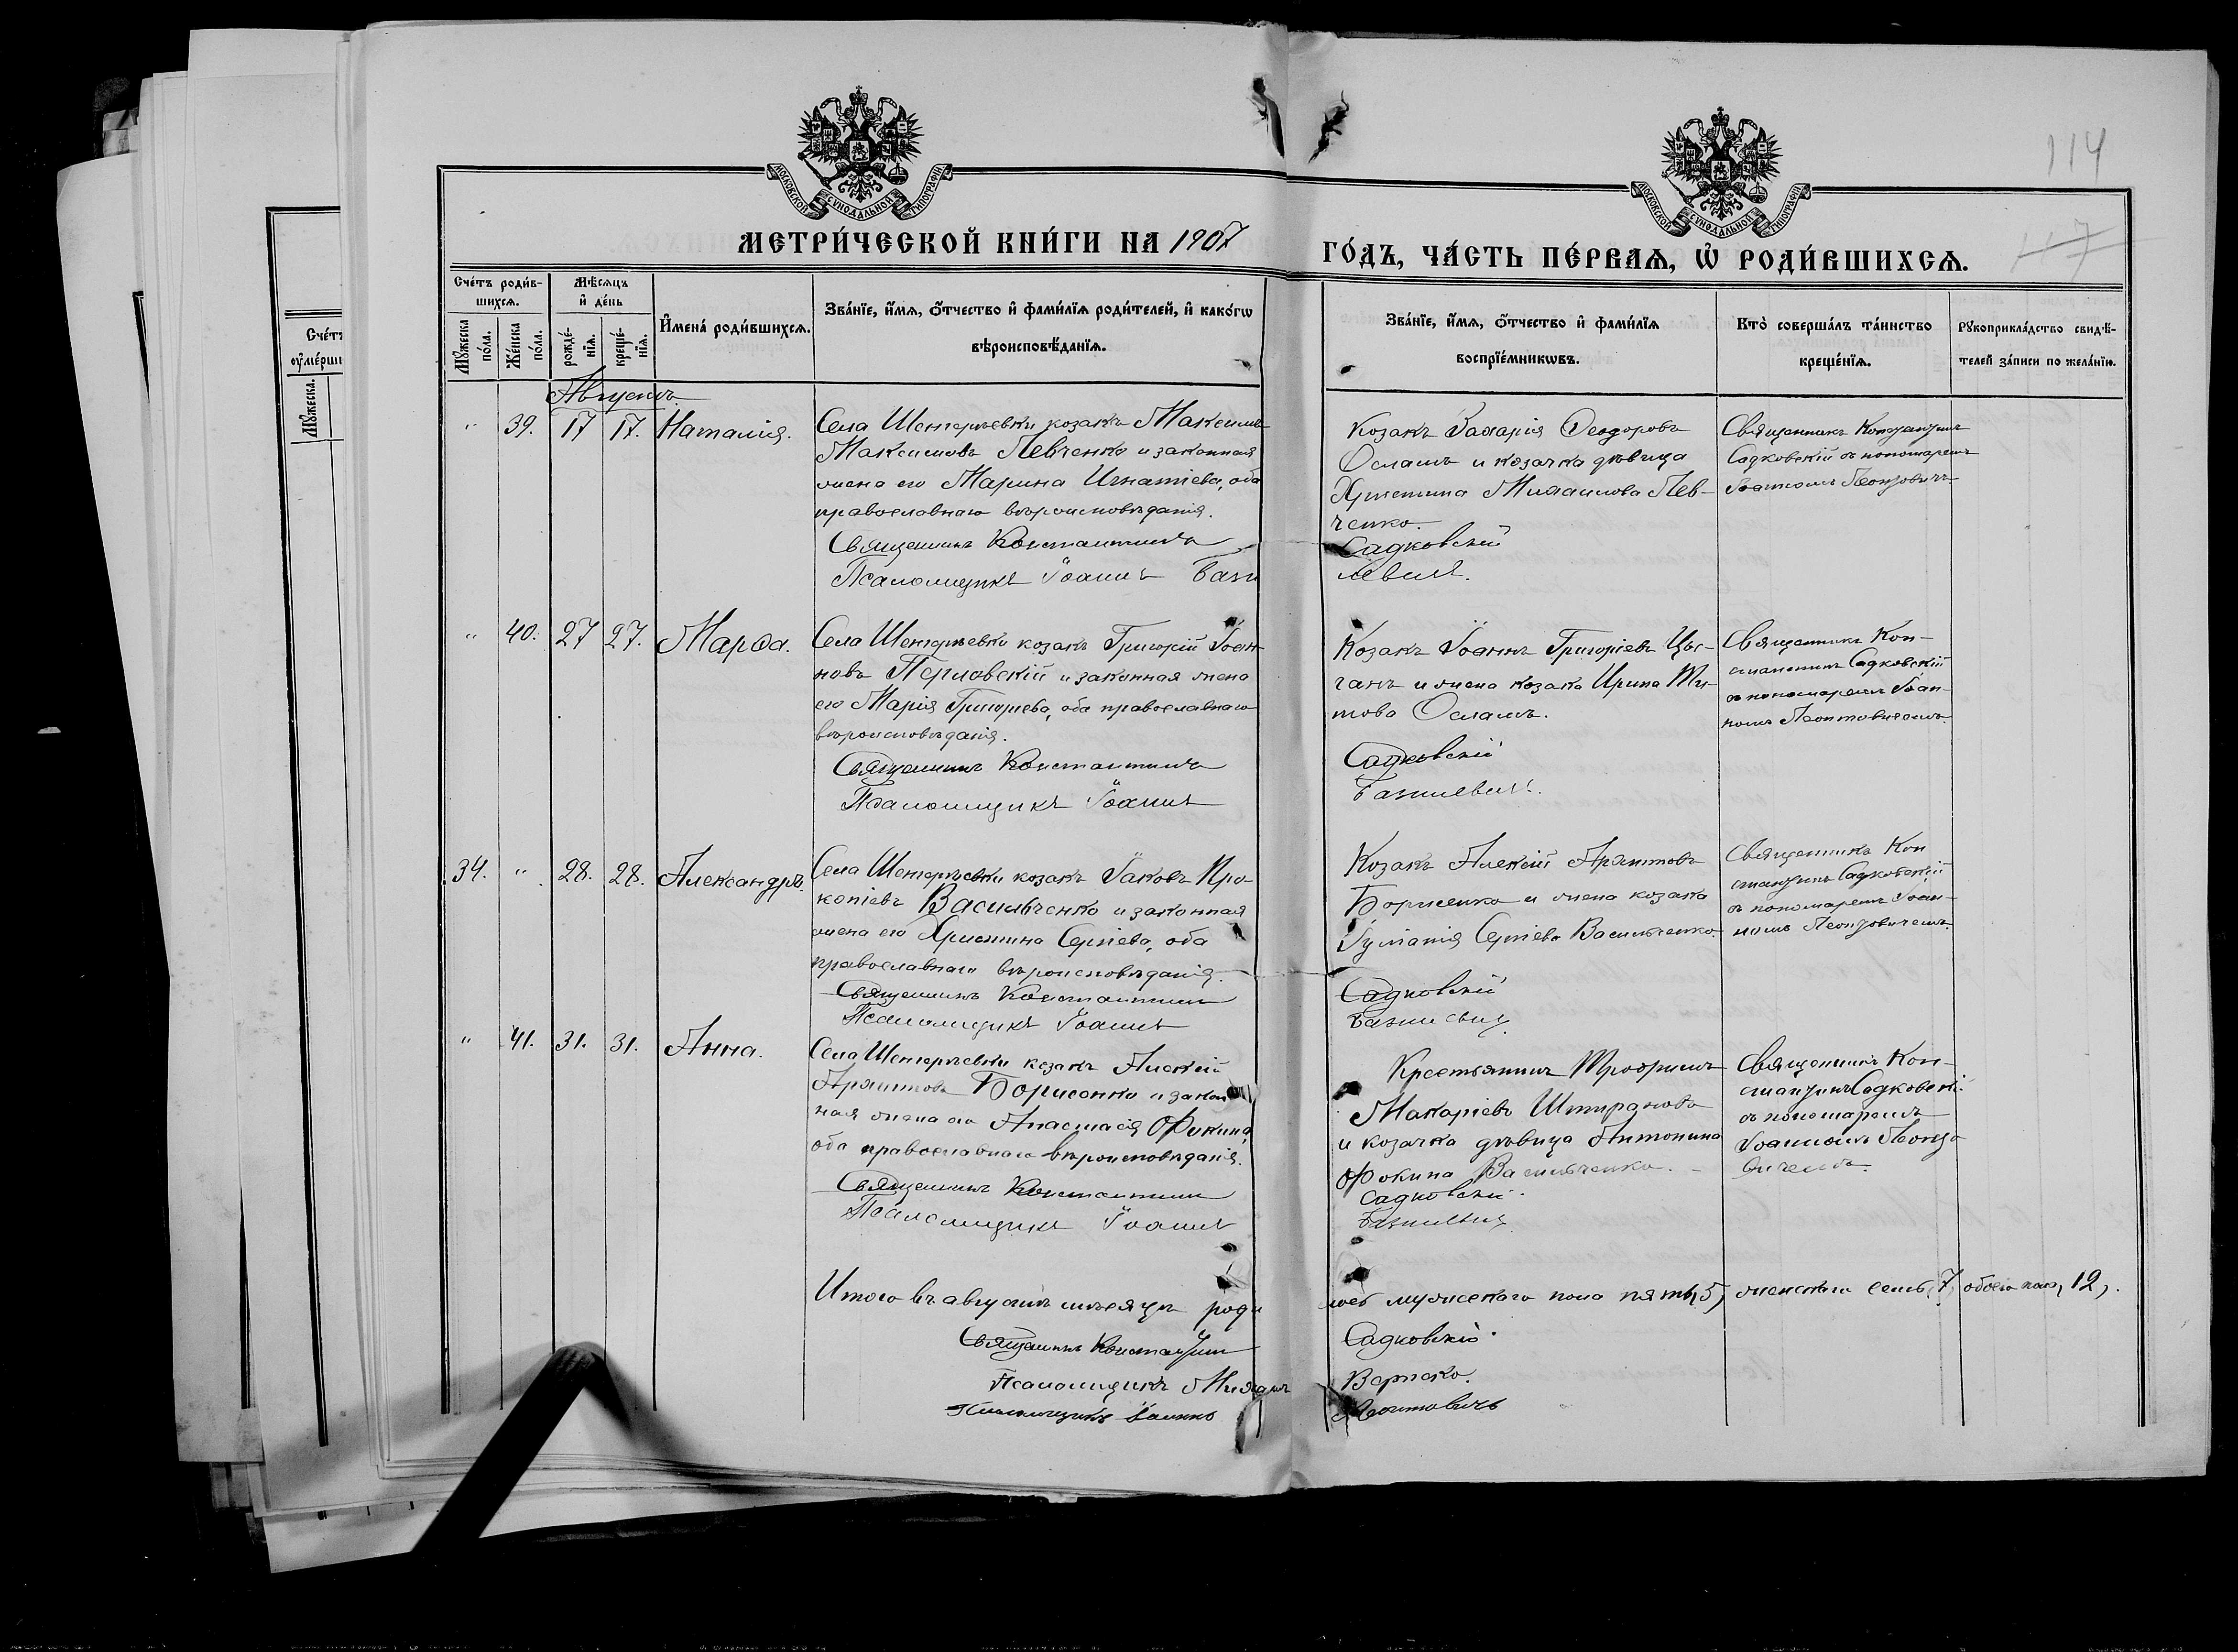 МОСКОВСКОЙ СѴНОДАЛЬНОЙ ТИПОГРАФІИ
МОСКОВСКОЙ СѴНОДАЛЬНОЙ ТИПОГРАФІИ
114
117
МЕТРИ́ЧЕСКОЙ КНИ́ГИ НА 1907
ГО́ДЪ, ЧА́СТЬ ПЕ́РВАѦ, Ѡ҆ РОДИ́ВШИХСѦ.
Сче́тъ роди́в-
шихсѧ.
Мꙋ́жеска по́ла.
Же́нска по́ла.
Мѣ́сѧцъ
и҆ де́нь
рожде́-
нїѧ.
креще́-
нїѧ.
И҆мена̀ роди́вшихсѧ.
Зва́нїе, и҆́мѧ, ѻ҆́тчество и҆ фами́лїѧ роди́телей, и҆ како́гѡ
вѣроисповѣ́данїѧ.
Зва́нїе, и҆́мѧ, ѻ҆́тчество и҆ фами́лїѧ
воспрїе́мникѡвъ.
Кто̀ соверша́лъ та́инство
креще́нїѧ.
Рꙋкоприкла́дство свидѣ́-
телей за́писи по жела́нїю.
Сче́тъ
ѹ҆ме́рши
Мꙋ́жеска.
Августъ
" 39. 17 17. Наталія.
Села Шенгерѣевки козакъ Максимъ
Максимовъ Левченко и законная
жена его Марина Игнатіева, оба
православнаго вѣроисповѣданія.
Священникъ Константинъ
Псаломщикъ Іоаннъ Бази
Козакъ Захарія Ѳеодоровъ
Осламъ и козачка дѣвица
Христина Михаилова Лев-
ченко.
Садковскій
левичъ.
Священникъ Константинъ
Садковскій съ пономаремъ
Іоанномъ Леонтовичемъ
" 40. 27 27. Марѳа.
Села Шенгерѣевки козакъ Григорій Іоан-
новъ Перловскій и законная жена
его Марія Григорьева, оба православнаго
вѣроисповѣданія.
Священникъ Константинъ
Псаломщикъ Іоаннъ
Козакъ Іоаннъ Григоріевъ Цы-
ганъ и жена козака Ирина Ти-
това Осламъ.
Садковскій
Базилевичъ.
Священникъ Кон-
стантинъ Садковскій
съ пономаремъ Іоан-
номъ Леонтовичемъ.
34. " 28. 28. Александръ.
Села Шенгерѣевки козакъ Іаковъ Про-
копіевъ Васильченко и законная
жена его Христина Сергіева, оба
православнаго вѣроисповѣданія.
Священникъ Константинъ
Псаломщикъ Іоаннъ
Козакъ Алексій
Борисенко и жена козака
Іуліанія Сергіева Васильченко.
Садковскій
Базилевичъ
Священникъ Кон
стантинъ Садковскій
съ пономаремъ Іоан-
номъ Леонтовичемъ.
" 41. 31. 31. Анна.
Села Шенгерѣевки козакъ Алексій
Борисенко и закон
ная жена его Анастасія Фокина,
оба православнаго вѣроисповѣданія.
Священникъ Константинъ
Псаломщикъ Іоаннъ
Крестьянинъ Трофимъ
Макаріевъ
и козачка дѣвица Антонина
Фокина Васильченко.
Садковскій
Базилевичъ
Священникъ Кон-
стантинъ Садковскі
съ пономаремъ
Іоанномъ Леонто
вичемъ.
Итого въ августѣ мѣсяцѣ роди
лось мужескаго пола пять, 5, женскаго семь, 7, обоего пола, 12,.
Священникъ Константинъ
Садковскій.
Псаломщикъ Михаилъ
Верпеко.
Псаломщикъ Іоаннъ
Леонтовичъ